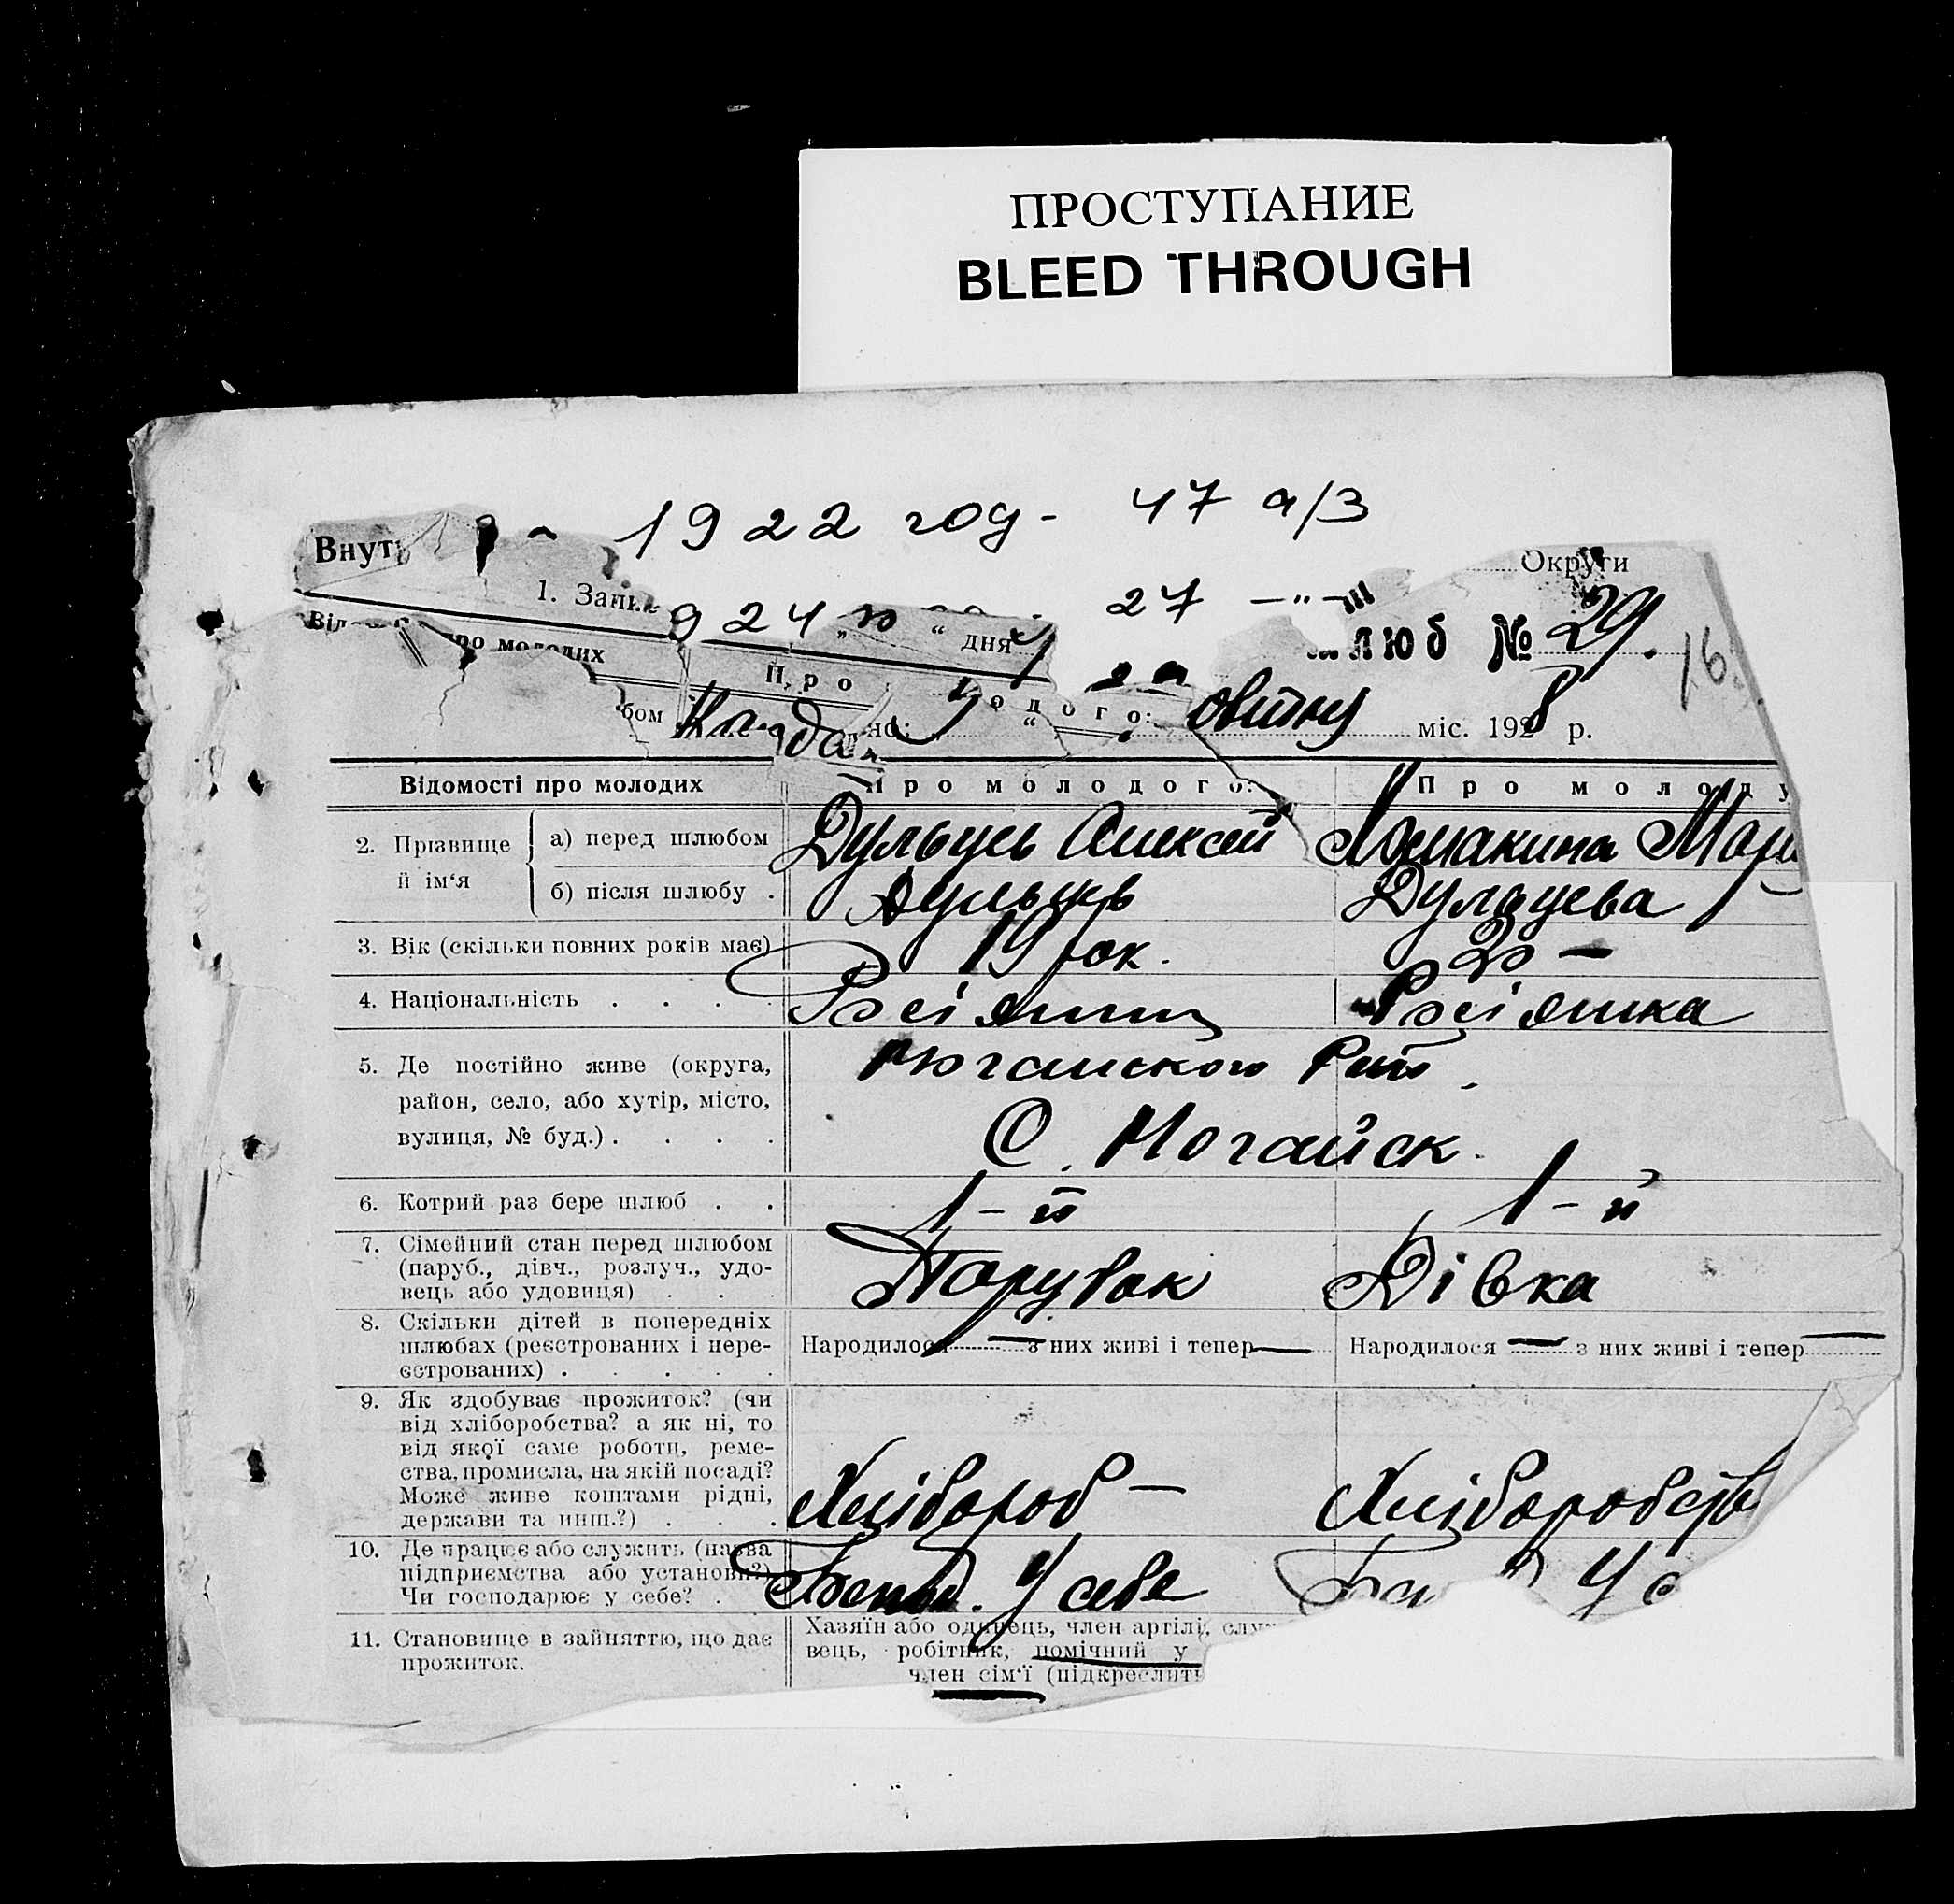 ПРОСТУПАНИЕ
BLEED THROUGH
1922 год - 47 а/з
Внут
Округи
1. Запис
924 27 -"-
дня
шлюб № 29.
16
Від про молодих
Про
одого:
бом
овтня міс. 1928 р.
Відомості про молодих Про молодого: Про молоду
2. Прізвище й ім'я
а) перед шлюбом Дульцев Алексей Ломакина Мари
б) після шлюбу . Дульцев Дульцева
3. Вік (скільки повних років має) 19 рок. 20 –
4. Національність . . . . Росіянин Росіянка
5. Де постійно живе (округа,
район, село, або хутір, місто,
вулиця, № буд.) . . . .
С. Ногайск.
6. Котрий раз бере шлюб . . 1-й 1-й
7. Сімейний стан перед шлюбом
(паруб., дівч., розлуч., удо-
вець або удовиця) . . . Парубок Дівка
8. Скільки дітей в попередніх
шлюбах (реєстрованих і нере-
єстрованих) . . . . .
Народилося — з них живі і тепер — Народилося — з них живі і тепер —
9. Як здобуває прожиток? (чи
від хліборобства? а як ні, то
від якої саме роботи, реме-
ства, промисла, на якій посаді?
Може живе коштами рідні,
держави та инш.?) . . . Хлібороб – Хліборобств
10. Де працює або служить (назва
підприємства або установи?)
Чи господарює у себе? . У себе У с
11. Становище в зайняттю, що дає
прожиток.
Хазяїн або одинець, член артілі, служ
вець, робітник, помічний у
член сім'ї (підкреслить